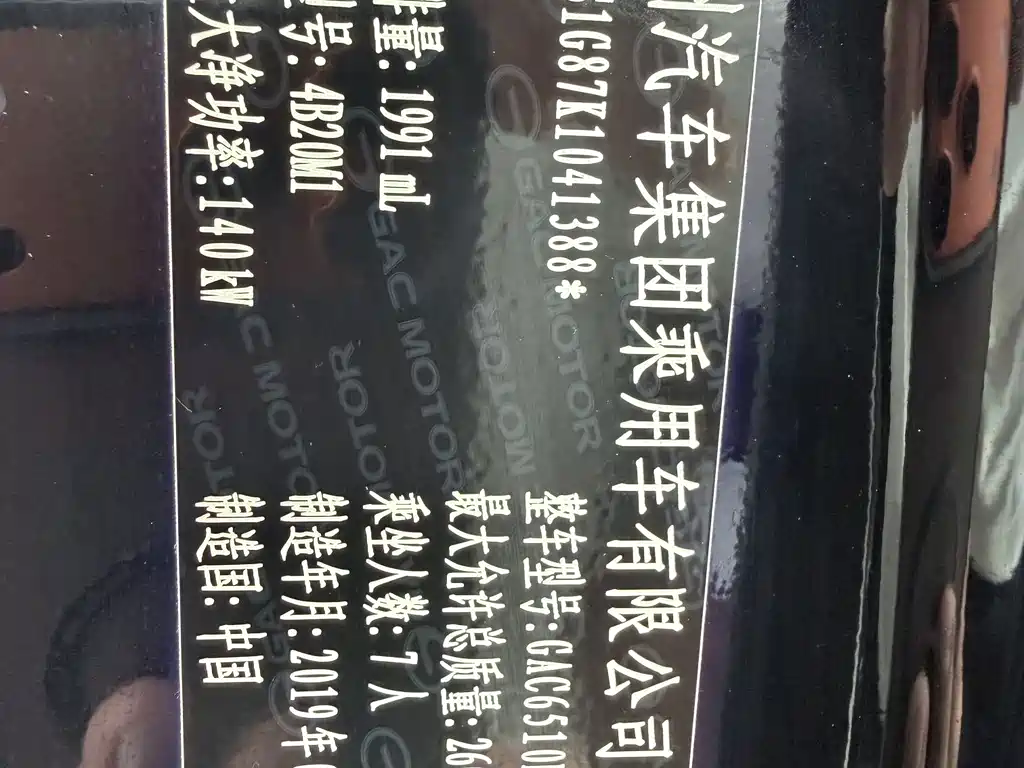 汽车集团乘用车有限公司
1G87K1041388*
整车型号:GAC6510
最大允许总质量:26
排量:1991mL
乘坐人数:7人
型号:4B20M1
制造年月:2019年
大净功率:140kW
制造国:中国
GAC MOTOR
GAC MOTOR
MOTOR
MOTOR
MOTOR